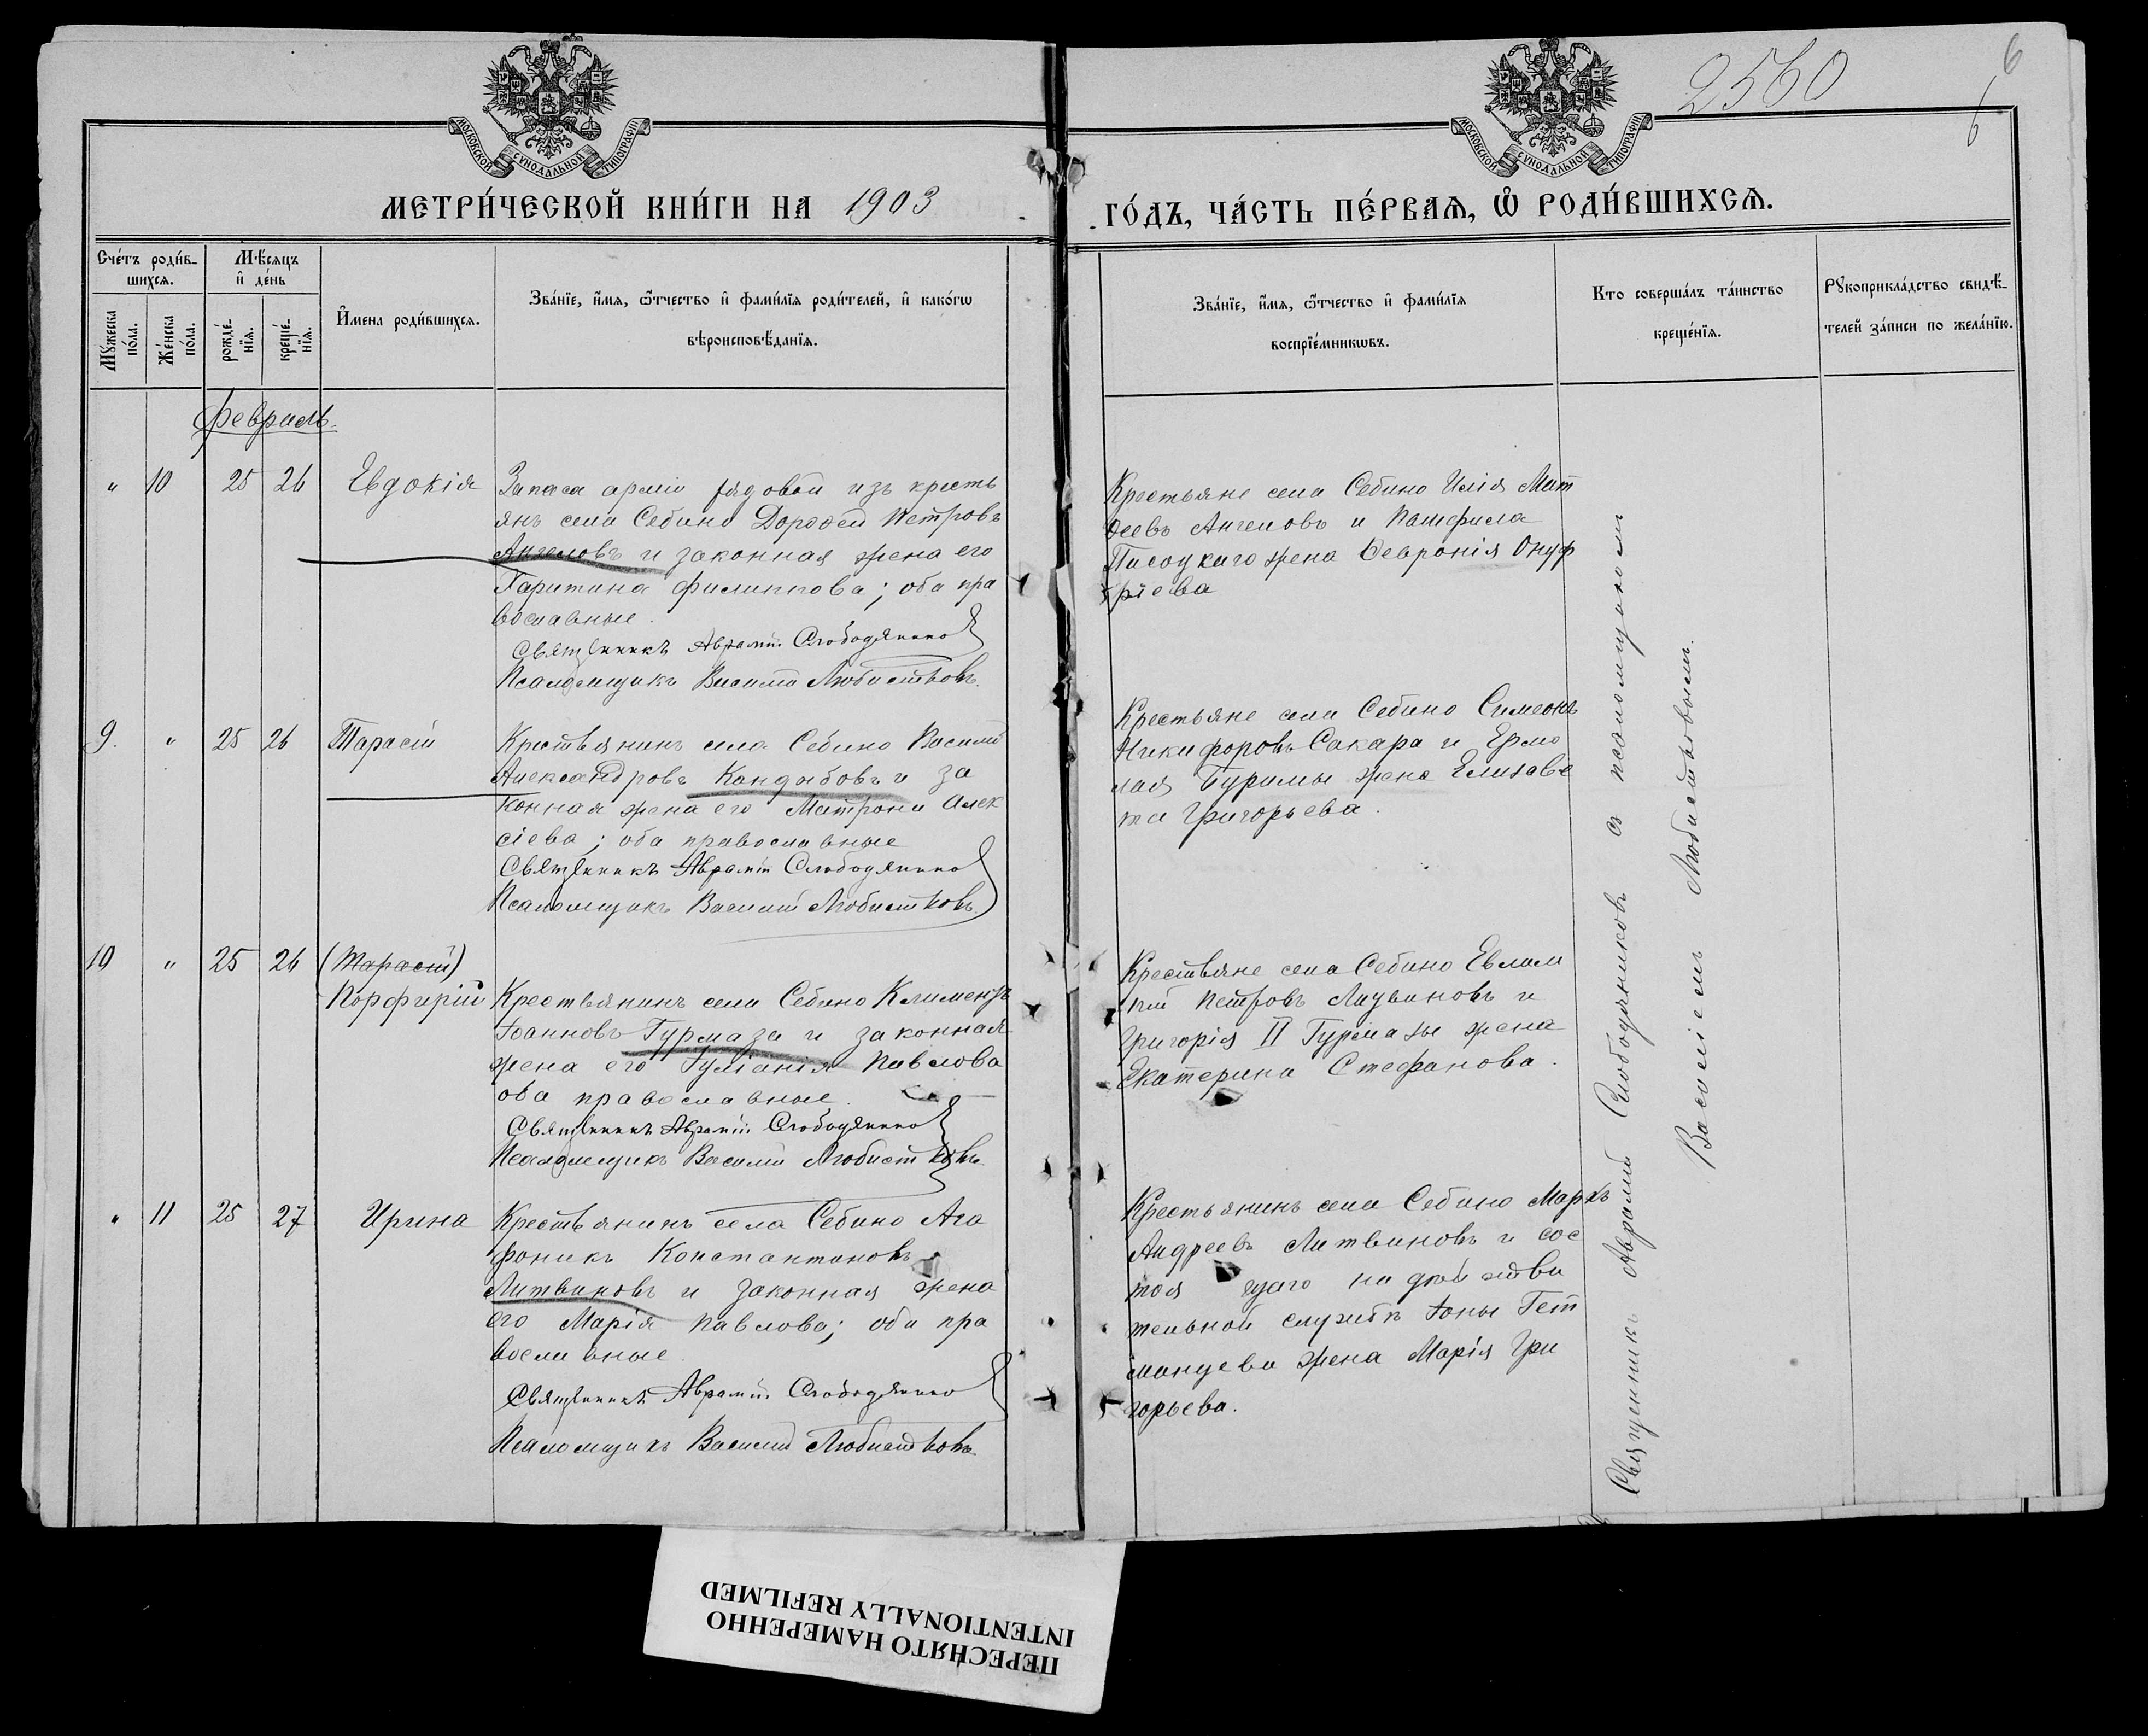 2560
6
6
МОСКОВСКОЙ СѴНОДАЛЬНОЙ ТИПОГРАФІИ
МОСКОВСКОЙ СѴНОДАЛЬНОЙ ТИПОГРАФІИ
МЕТРИ́ЧЕСКОЙ КНИ́ГИ НА 1903
ГО́ДЪ, ЧА́СТЬ ПЕ́РВАѦ, Ѡ҆ РОДИ́ВШИХСѦ.
Сче́тъ роди́в-
шихсѧ.
Мѣ́сяцъ
и҆ де́нь
Мꙋ́жеска
по́ла.
Же́нска
по́ла.
рожде́-
нїѧ.
креще́-
нїѧ.
И҆мена роди́вшихсѧ.
Зва́нїе, и҆́мѧ, ѻ҆́тчество и҆ фами́лїѧ роди́телей, и҆ како́гѡ
вѣроисповѣ́данїѧ.
Зва́нїе, и҆́мѧ, ѻ҆́тчество и҆ фами́лїѧ
воспрїе́мникѡвъ.
Кто соверша́лъ та́инство
креще́нїѧ.
Рꙋкоприкла́дство свидѣ́-
телей за́писи по жела́нїю.
Февраль
" 10 25 26 Евдокія
Запаса арміи рядовой изъ кресть
янъ села Себино Дорофей Петровъ
Ангеловъ и законная жена его
Харитина Филиппова; оба пра
вославные.
Священникъ Аврамій Слободянико
Псаломщикъ Василій Любистковъ.
Крестьяне села Себино Илія Мат
ѳеевъ Ангеловъ и Памфила
Писоцкаго жена Ѳевронія Онуф
ріева
9. " 25 26 Тарасій
Крестьянинъ села Себино Василій
Александровъ Кандыбовъ и за
конная жена его Матрона Алек
сіева; оба православные
Священникъ Аврамій Слободянико
Псаломщикъ Василій Любистковъ
Крестьяне села Себино Симеонъ
Никифоровъ Сакара и Ермо
лая Буримы жена Елизаве
та Григорьева.
10 " 25 26 (Тарасій)
Порфирій
Крестьянинъ села Себино Климентъ
Іоанновъ Гурмаза и законная
жена его Іуліанія Павлова
оба православные.
Священникъ Аврамій Слободянико
Псаломщикъ Василій Любистковъ
Крестьяне села Себино Евлам
пій Петровъ Лицвиновъ и
Григорія II Гурмазы жена
Екатерина Стефанова.
" 11 25 27 Ирина
Крестьянинъ села Себино Ага
фоникъ Константиновъ
Литвиновъ и законная жена
его Марія Павлова; оба пра
вославные
Священникъ Аврамій Слободянико
Псаломщикъ Василій Любистковъ.
Крестьянинъ села Себино Маркъ
Андреевъ Литвиновъ и сос
тоя щаго на дѣйстви
тельной службѣ Іоны Гет
манцева жена Марія Гри
горьева.
Священникъ Аврамій Слободяниковъ съ псаломщикомъ
Василіемъ Любистковымъ.
ПЕРЕСНЯТО НАМЕРЕННО
INTENTIONALLY REFILMED